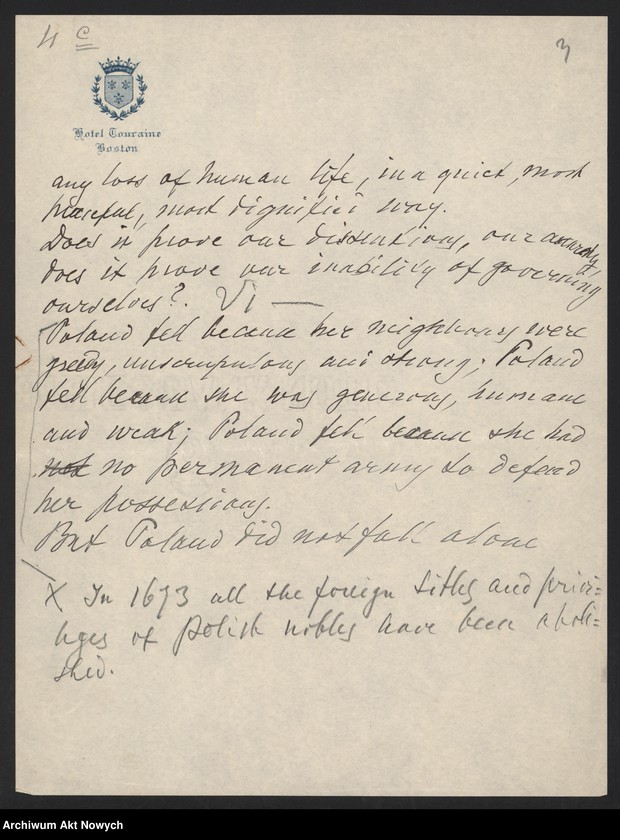 4 c
3
Hotel Touraine
Boston
any loss of human life, in a quiet, most
peaceful, most dignified way.
Does it prove our dissentions, our anarchy,
does it prove our inability of governing
ourselves? VI —
Poland fell because her neighbours were
greedy, unscrupulous and strong; Poland
fell because she was generous, humane
and weak; Poland fell because she had
not no permanent army to defend
her possessions.
But Poland did not fall alone
X In 1673 all the foreign titles and privi=
leges of polish nobles have been aboli=
shed.
Archiwum Akt Nowych